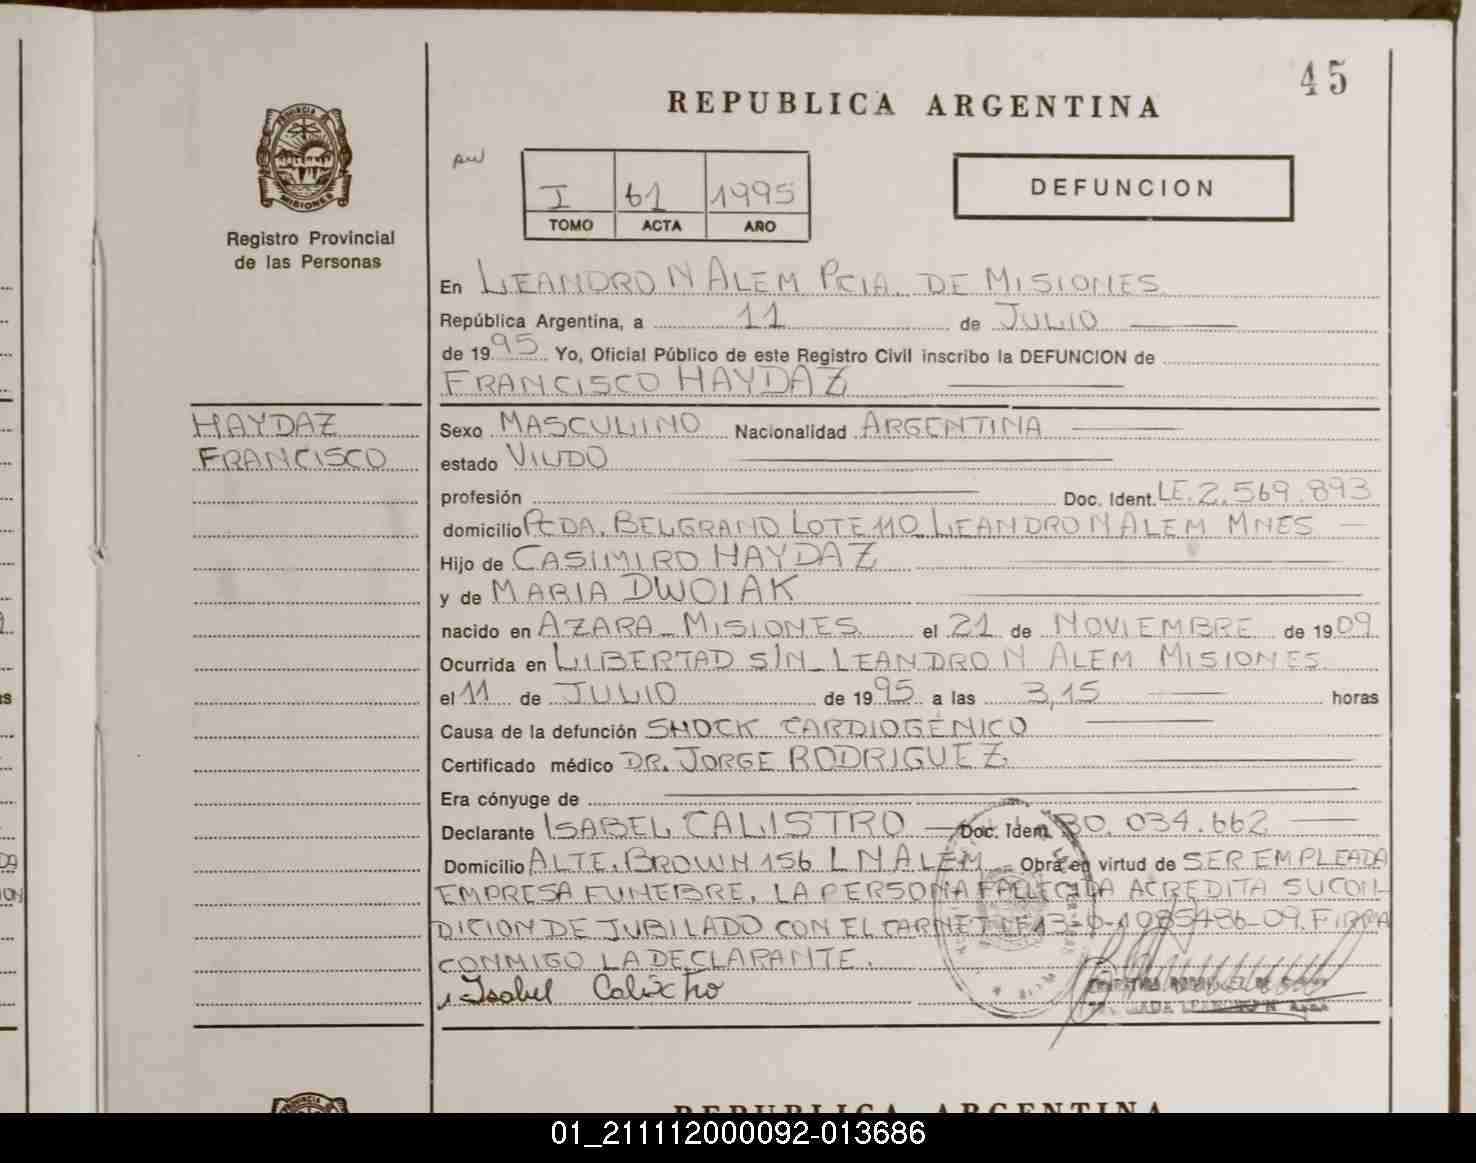 45
REPUBLICA ARGENTINA
PROVINCIA DE
MISIONES
Registro Provincial
de las Personas
I 61 1995
TOMO ACTA AÑO
DEFUNCION
En LEANDRO N ALEM PCIA. DE MISIONES
República Argentina, a 11 de JULIO
de 1995 Yo, Oficial Público de este Registro Civil inscribo la DEFUNCION de
FRANCISCO HAYDAZ
HAYDAZ
FRANCISCO
Sexo MASCULINO Nacionalidad ARGENTINA
estado VIUDO
profesión Doc. Ident. LE. 2.569.893
domicilio PCDA. BELGRANO LOTE 110 LEANDRO N ALEM MNES
Hijo de CASIMIRO HAYDAZ
y de MARIA DWOIAK
nacido en AZARA - MISIONES el 21 de NOVIEMBRE de 1909
Ocurrida en LIBERTAD S/N - LEANDRO N ALEM MISIONES
el 11 de JULIO de 1995 a las 3,15 horas
Causa de la defunción SHOCK CARDIOGÉNICO
Certificado médico DR. JORGE RODRIGUEZ
Era cónyuge de
Declarante ISABEL CALISTRO Doc. Ident. 30.034.662
Domicilio ALTE. BROWN 156 L N ALEM Obra en virtud de SER EMPLEADA
EMPRESA FUNEBRE. LA PERSONA FALLECIDA ACREDITA SU CON
DICION DE JUBILADO CON EL CARNET Nº 13-0-1085486-09. FIRMA
CONMIGO LA DECLARANTE.
Isabel Calixtro
REPUBLICA ARGENTINA
01_211112000092-013686